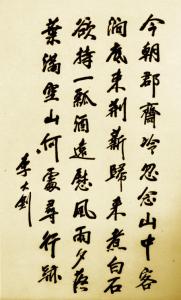 今朝郡齋冷忽念山中客
澗底束荊薪歸來煮白石
欲持一瓢酒遠慰風雨夕落
葉滿空山何處尋行跡
李大釗